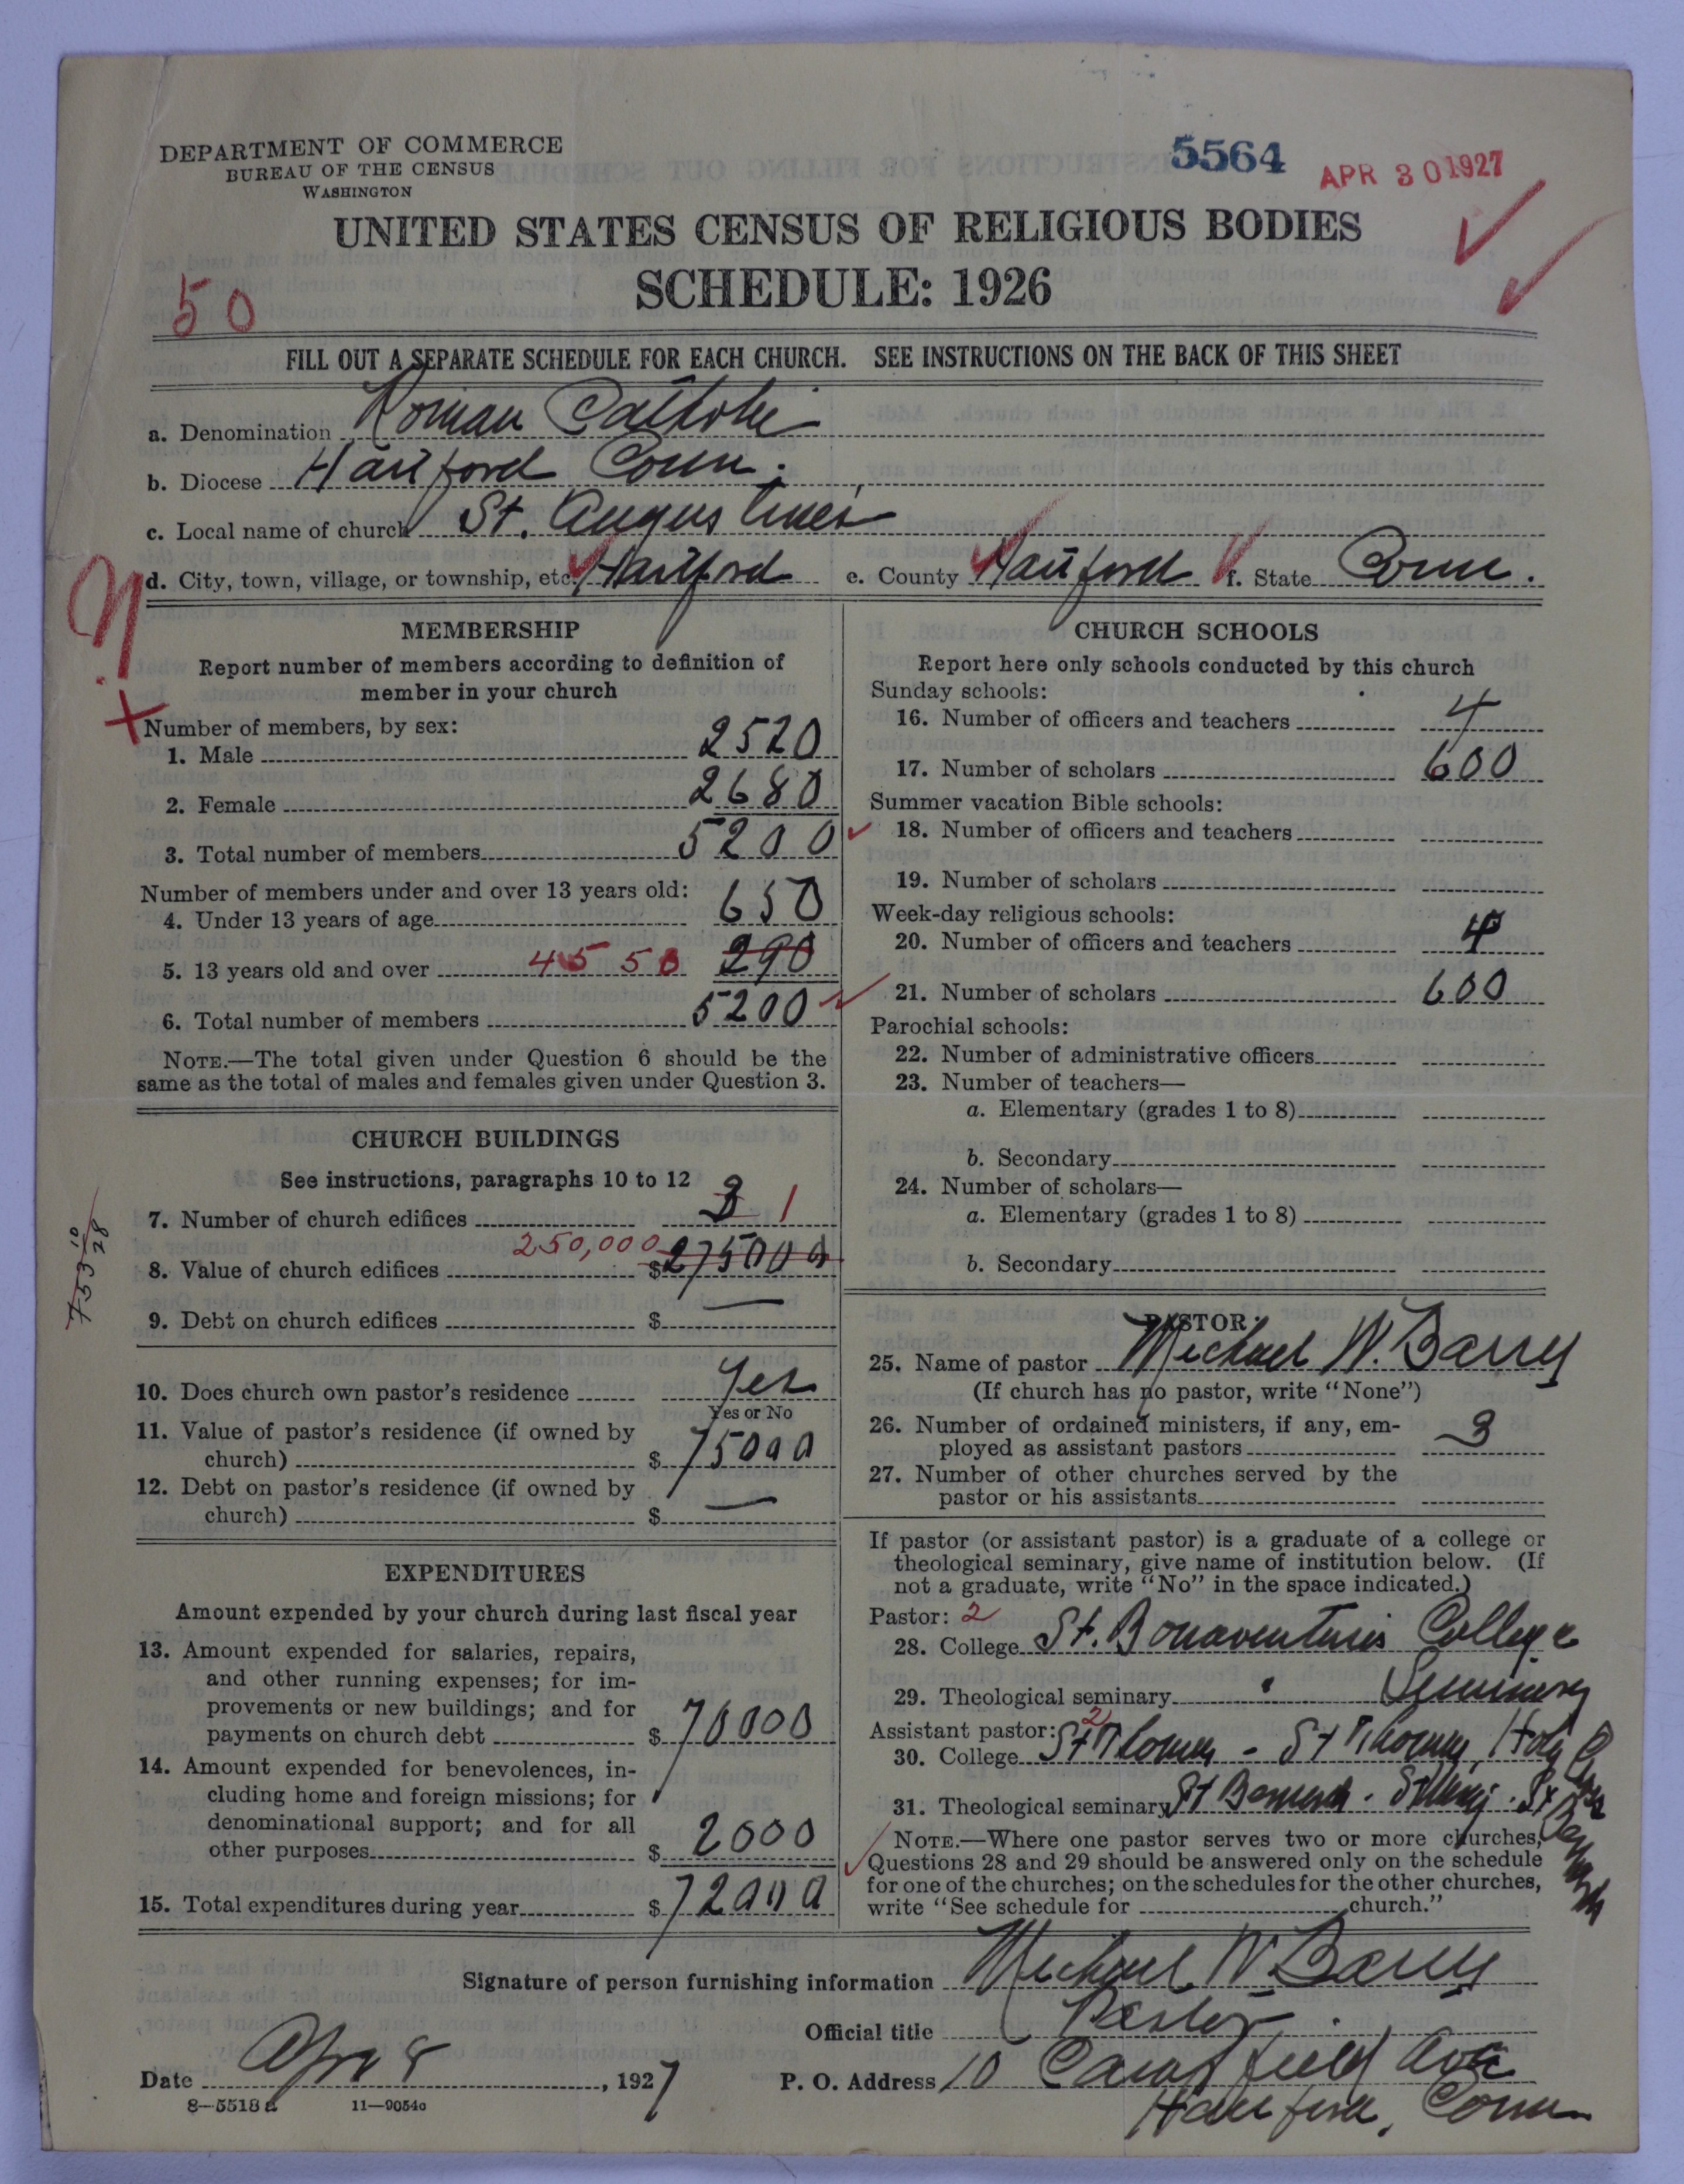 DEPARTMENT OF COMMERCE
BUREAU OF THE CENSUS
WASHINGTON
5564
APR 30 1927
UNITED STATES CENSUS OF RELIGIOUS BODIES
SCHEDULE: 1926
50
FILL OUT A SEPARATE SCHEDULE FOR EACH CHURCH. SEE INSTRUCTIONS ON THE BACK OF THIS SHEET
a. Denomination Roman Catholic
b. Diocese Hartford Conn.
c. Local name of church St. Augustine's
d. City, town, village, or township, etc. Hartford e. County Hartford f. State Conn.
MEMBERSHIP
Report number of members according to definition of
member in your church
Number of members, by sex:
1. Male 2520
2. Female 2680
3. Total number of members 5200
Number of members under and over 13 years old:
4. Under 13 years of age 650
5. 13 years old and over 4550 290
6. Total number of members 5200
NOTE.—The total given under Question 6 should be the
same as the total of males and females given under Question 3.
CHURCH BUILDINGS
See instructions, paragraphs 10 to 12
7. Number of church edifices 3 1
250,000
8. Value of church edifices $275000
9. Debt on church edifices $ —
10. Does church own pastor's residence Yes
Yes or No
11. Value of pastor's residence (if owned by
church) $75000
12. Debt on pastor's residence (if owned by
church) $ —
EXPENDITURES
Amount expended by your church during last fiscal year
13. Amount expended for salaries, repairs,
and other running expenses; for im-
provements or new buildings; and for
payments on church debt $70000
14. Amount expended for benevolences, in-
cluding home and foreign missions; for
denominational support; and for all
other purposes $2000
15. Total expenditures during year $72000
CHURCH SCHOOLS
Report here only schools conducted by this church
Sunday schools:
16. Number of officers and teachers 4
17. Number of scholars 600
Summer vacation Bible schools:
18. Number of officers and teachers
19. Number of scholars
Week-day religious schools:
20. Number of officers and teachers 4
21. Number of scholars 600
Parochial schools:
22. Number of administrative officers
23. Number of teachers—
a. Elementary (grades 1 to 8)
b. Secondary
24. Number of scholars—
a. Elementary (grades 1 to 8)
b. Secondary
PASTOR
25. Name of pastor Michael W. Barry
(If church has no pastor, write "None")
26. Number of ordained ministers, if any, em-
ployed as assistant pastors 3
27. Number of other churches served by the
pastor or his assistants
If pastor (or assistant pastor) is a graduate of a college or
theological seminary, give name of institution below. (If
not a graduate, write "No" in the space indicated.)
Pastor: 2
28. College St. Bonaventure's College
29. Theological seminary " Seminary
Assistant pastor: 2
30. College St Thomas - St Thomas, Holy Cross
31. Theological seminary St Bernard - St Mary - St Bernard
NOTE.—Where one pastor serves two or more churches,
Questions 28 and 29 should be answered only on the schedule
for one of the churches; on the schedules for the other churches,
write "See schedule for church."
Signature of person furnishing information Michael W Barry
Official title Pastor.
Date Apr 8, 1927 P. O. Address 10 Campfield Ave
Hartford, Conn.
8—5518a 11—9054a